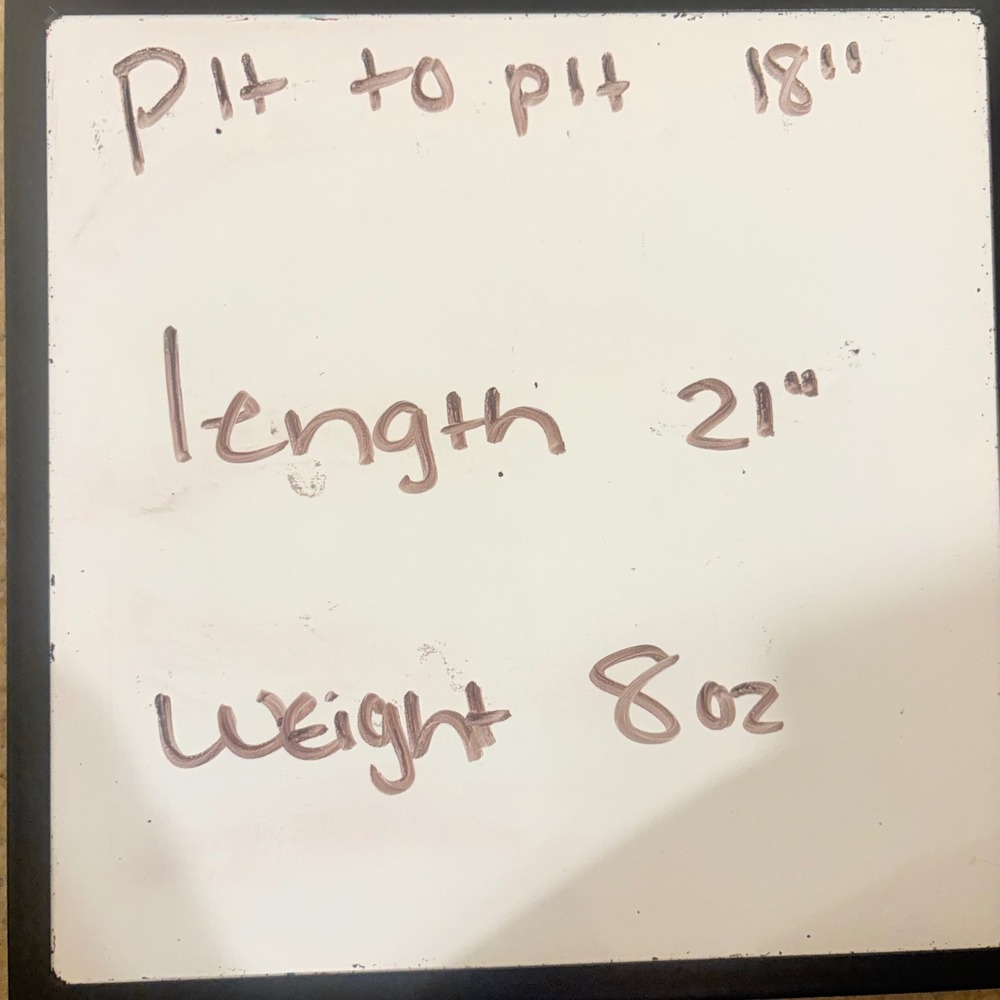 Pit to pit 18"
length 21"
weight 8 oz